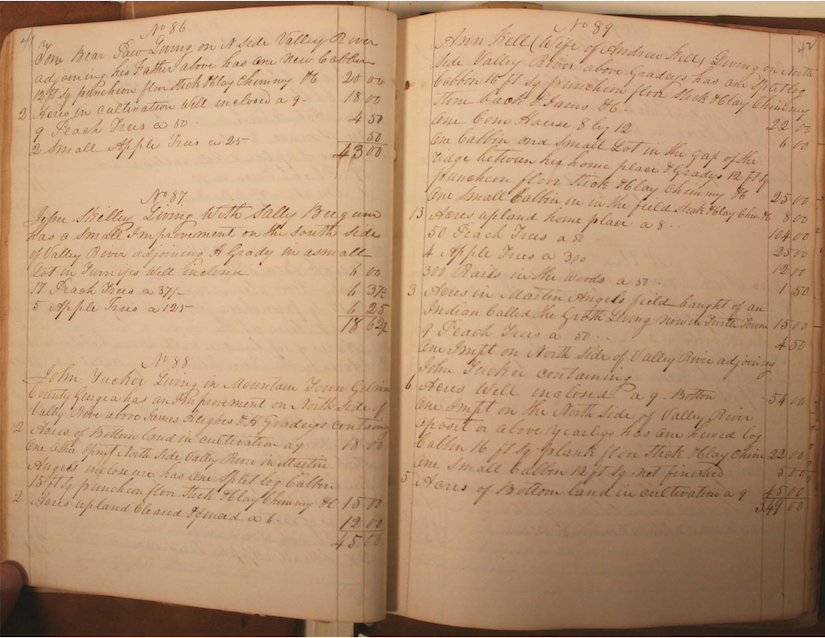 41
No 86
Tom Bear Paw Living on N side Valley River
adjoining his Father above has one New Cabbin
12 ft sq puncheon flor Stick & Clay Chimny &c 20 00
2 Acres in cultivation Well inclosed a 9- 18 00
9 Peach Trees a 50.. 4 50
2 Small Apple Trees a 25 50
43 00
No 87
Jesse Skilley Living With Sally Bee gum
has a small Improvement on the South side
of Valley River adjoining H Grady in a small
Lot in Turneps Well Inclosed 6 00
17 Peach Trees a 37/- 6 37-
5 Apple Trees a 125 6 25
18 62
No 88
John Tucker Living in Mountain Town
County Georgia has an Improvement on North Side of
Valley River above James Hughes & H Gradeys containing
2 Acres of Bottom land in cultivation a 9 18 00
one other Impt North Side Valley River in Martin
Angels inclosure has one Split log Cabbin
15 ft sq puncheon flor Stick & Clay Chimny &c 15 00
2 Acres upland Cleared & fenced a 6. 12 00
45 00
42
No 89
Ann Kell (Wife of Andrew Kell) Living on North
Side Valley River above Gradeys has one Split log
Cabbin 16 ft sq puncheon flor Stick & Clay Chimny
Stone back & Jams &c 22 00
one Corn House 8 by 12 6 00
one Cabbin and Small Lot in the gap of the
ridge between his home place & Gradys 12 ft sq
puncheon flor Stick & Clay Chimny &c 25 00
one Small Cabbin in the field Stick & Clay Chim &c 8 00
13 Acres upland home place a 8.. 104 00
50 Peach Trees a 50 25 00
4 Apple Trees a 3,00 12 00
300 Rails in the Woods a 50. 1 50
3 Acres in Martin Angels field baught of an
Indian Called the Living now in Turtle Town 15 00
9 Peach Trees a 50.. 4 50
one Impt on North Side of Valley River adjoining
John Tucker containing
6 Acres Well inclosed a 9. Bottom 54 00
one Impt on the North Side of Valley River
aposit or above Yearleys has one hewed log
Cabbin 16 ft sq plank flor Stick & Clay Chim 22 00
one Small Cabbin 12 ft sq not finished 5 00
5 Acres of Bottom land in cultivation a 9 45 00
349 00